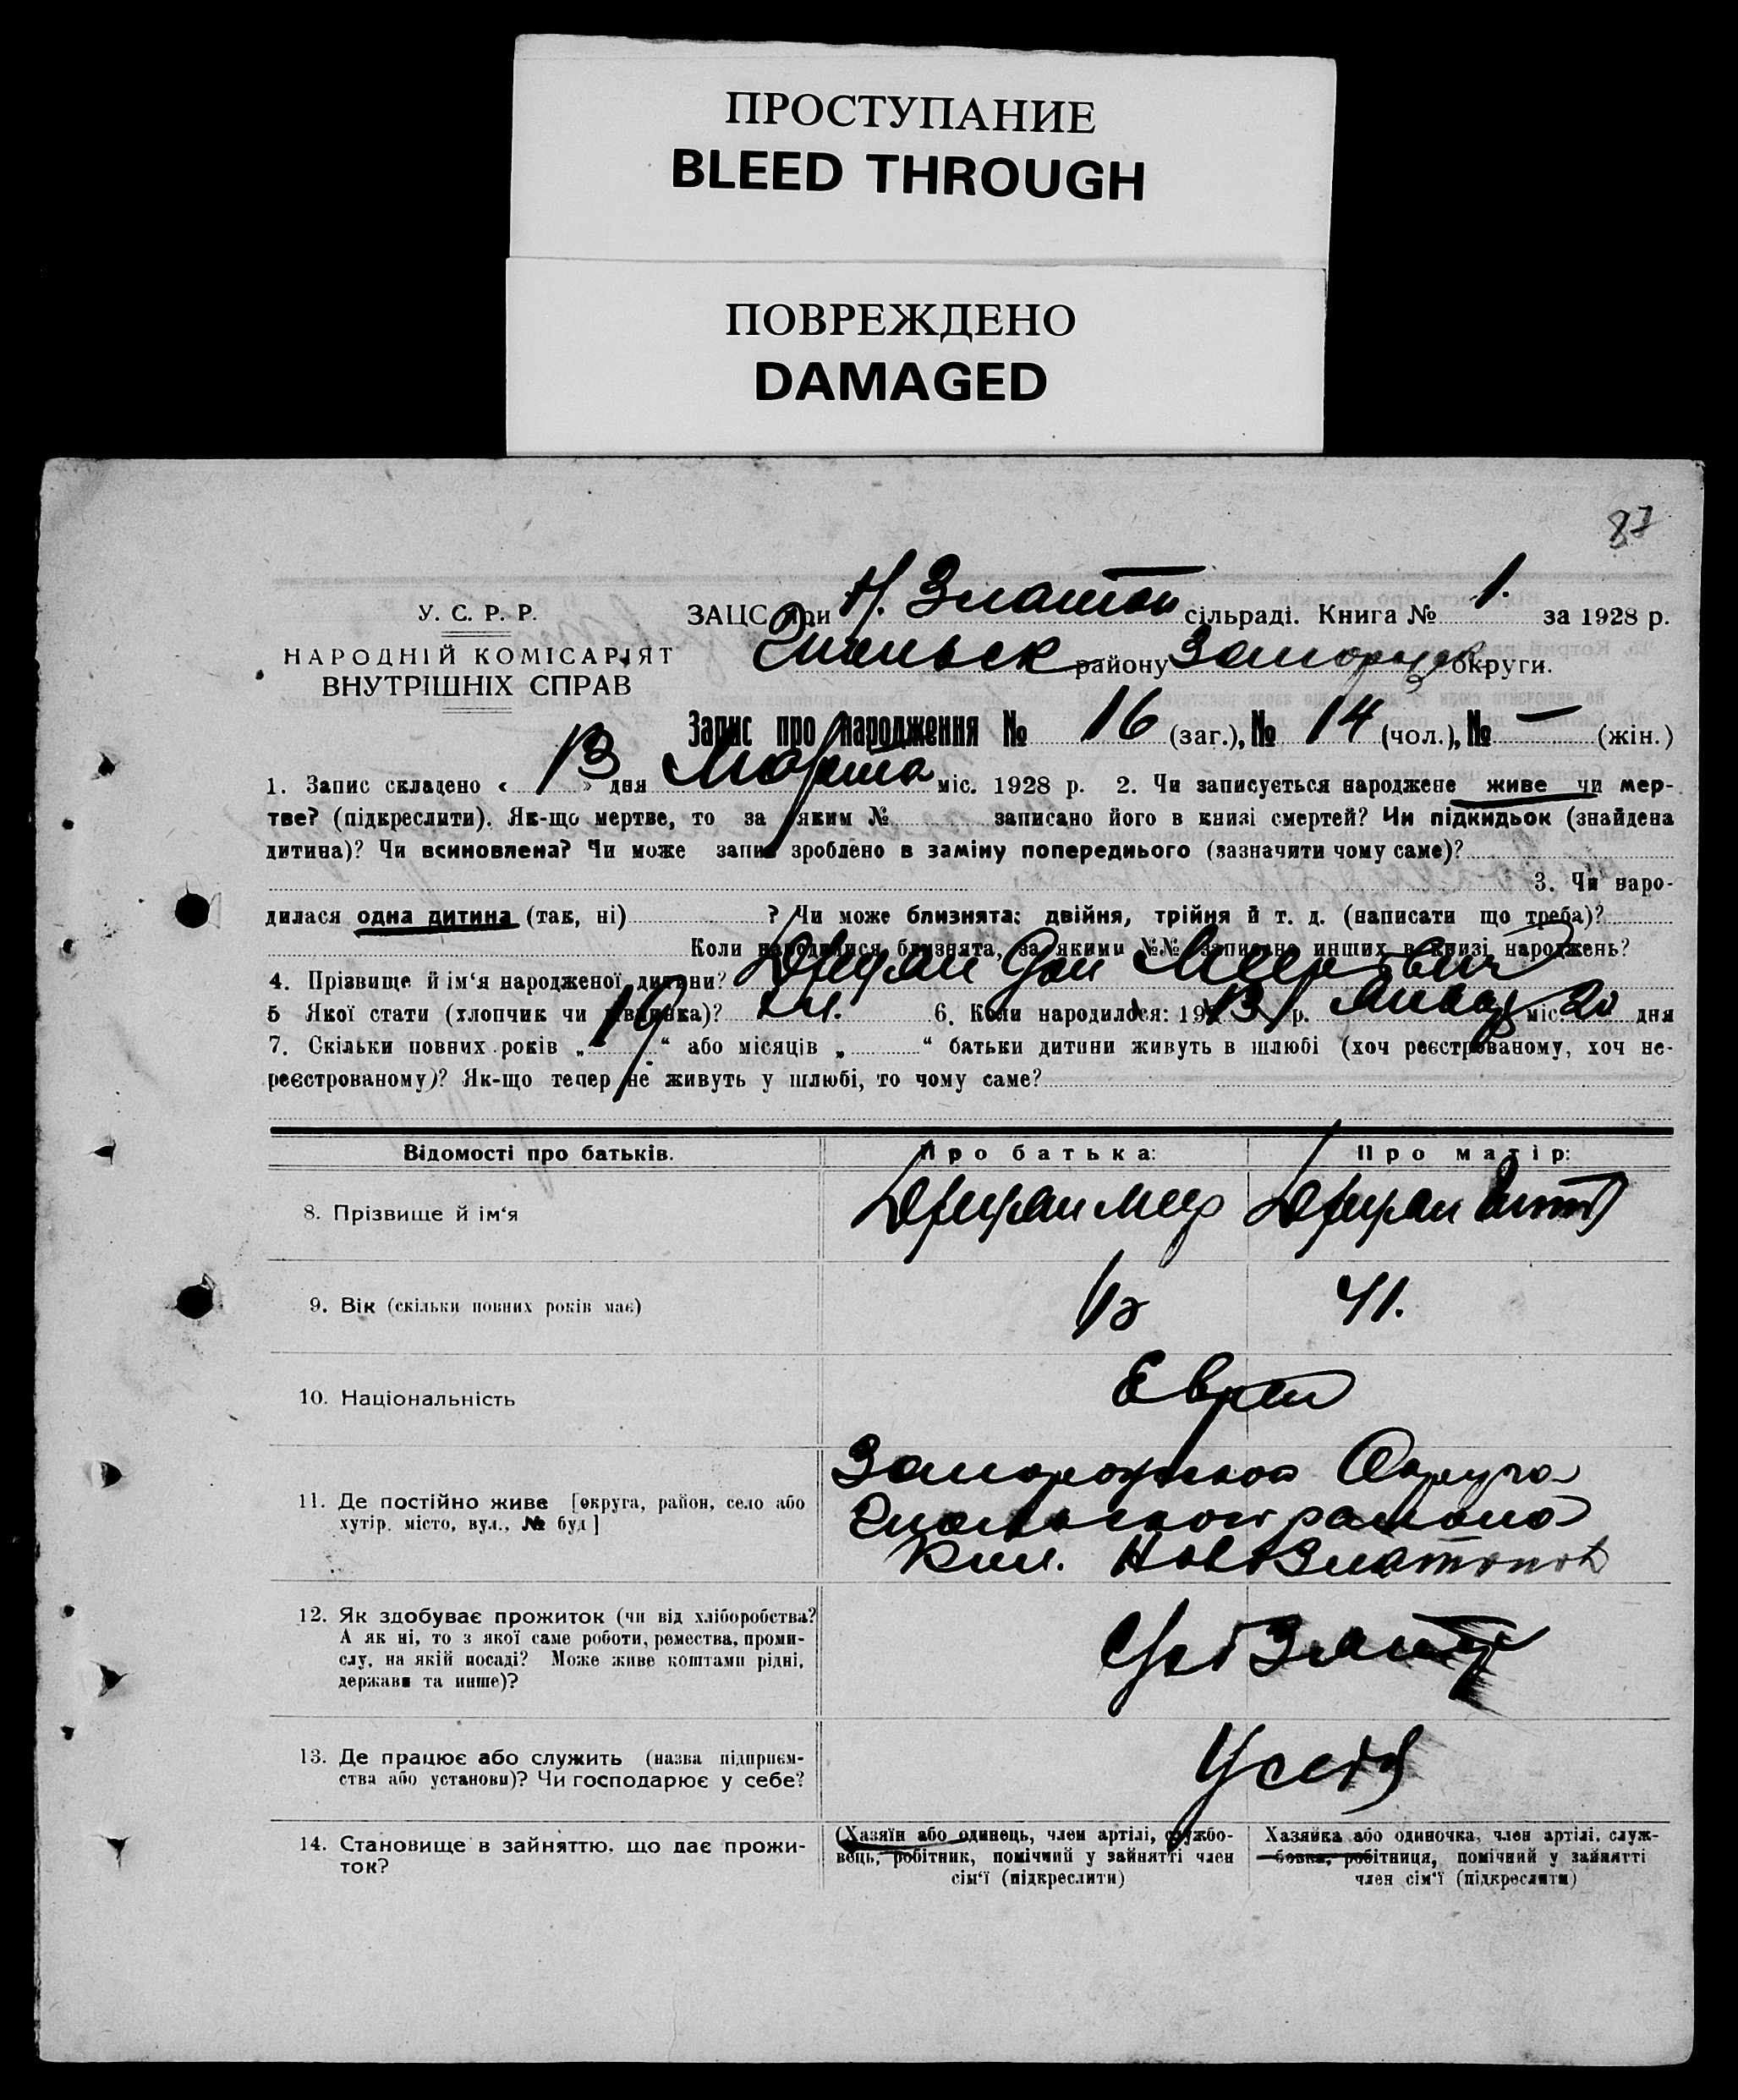 ПРОСТУПАНИЕ
BLEED THROUGH
ПОВРЕЖДЕНО
DAMAGED
87
У. С. Р. Р.
НАРОДНІЙ КОМІСАРІЯТ
ВНУТРІШНІХ СПРАВ
ЗАЦС при Н. Златоп сільраді. Книга № 1. за 1928 р.
району округи.
Запис про народження № 16 (заг.), № 14 (чол.), № — (жін.)
1. Запис складено « 13 » дня Марта міс. 1928 р. 2. Чи записується народжене живе чи мер-
тве? (підкреслити). Як-що мертве, то за яким № записано його в книзі смертей? Чи підкидьок (знайдена
дитина)? Чи всиновлена? Чи може запис зроблено в заміну попереднього (зазначити чому саме)?
3. Чи наро-
дилася одна дитина (так, ні) ? Чи може близнята: двійня, трійня й т. д. (написати що треба)?
Коли народилися близнята, за якими №№ записано инших в книзі народжень?
4. Прізвище й ім‘я народженої дитини?
5 Якої стати (хлопчик чи дівчинка)? 6. Коли народилося: 19 р. міс. 20 дня
7. Скільки повних років „ “ або місяців „ “ батьки дитини живуть в шлюбі (хоч реєстрованому, хоч не-
реєстрованому)? Як-що тепер не живуть у шлюбі, то чому саме?
Відомості про батьків.
Про батька:
Про матір:
8. Прізвище й ім‘я
9. Вік (скільки повних років має)
41.
10. Національність
Евреи
11. Де постійно живе [округа, район, село або
хутір, місто, вул., № буд]
Запорожской Округа
района
Кол. НовЗлатополь
12. Як здобуває прожиток (чи від хліборобства?
А як ні, то з якої саме роботи, ремества, проми-
слу, на якій посаді? Може живе коштами рідні,
держави та инше)?
13. Де працює або служить (назва підприєм-
ства або установи)? Чи господарює у себе?
У себя
14. Становище в зайняттю, що дає прожи-
ток?
(Хазяїн або одинець, член артілі, службо-
вець, робітник, помічний у зайнятті член
сім‘ї (підкреслити)
Хазяйка або одиночка, член артілі, служ-
бовка, робітниця, помічний у зайнятті
член сім‘ї (підкреслити)